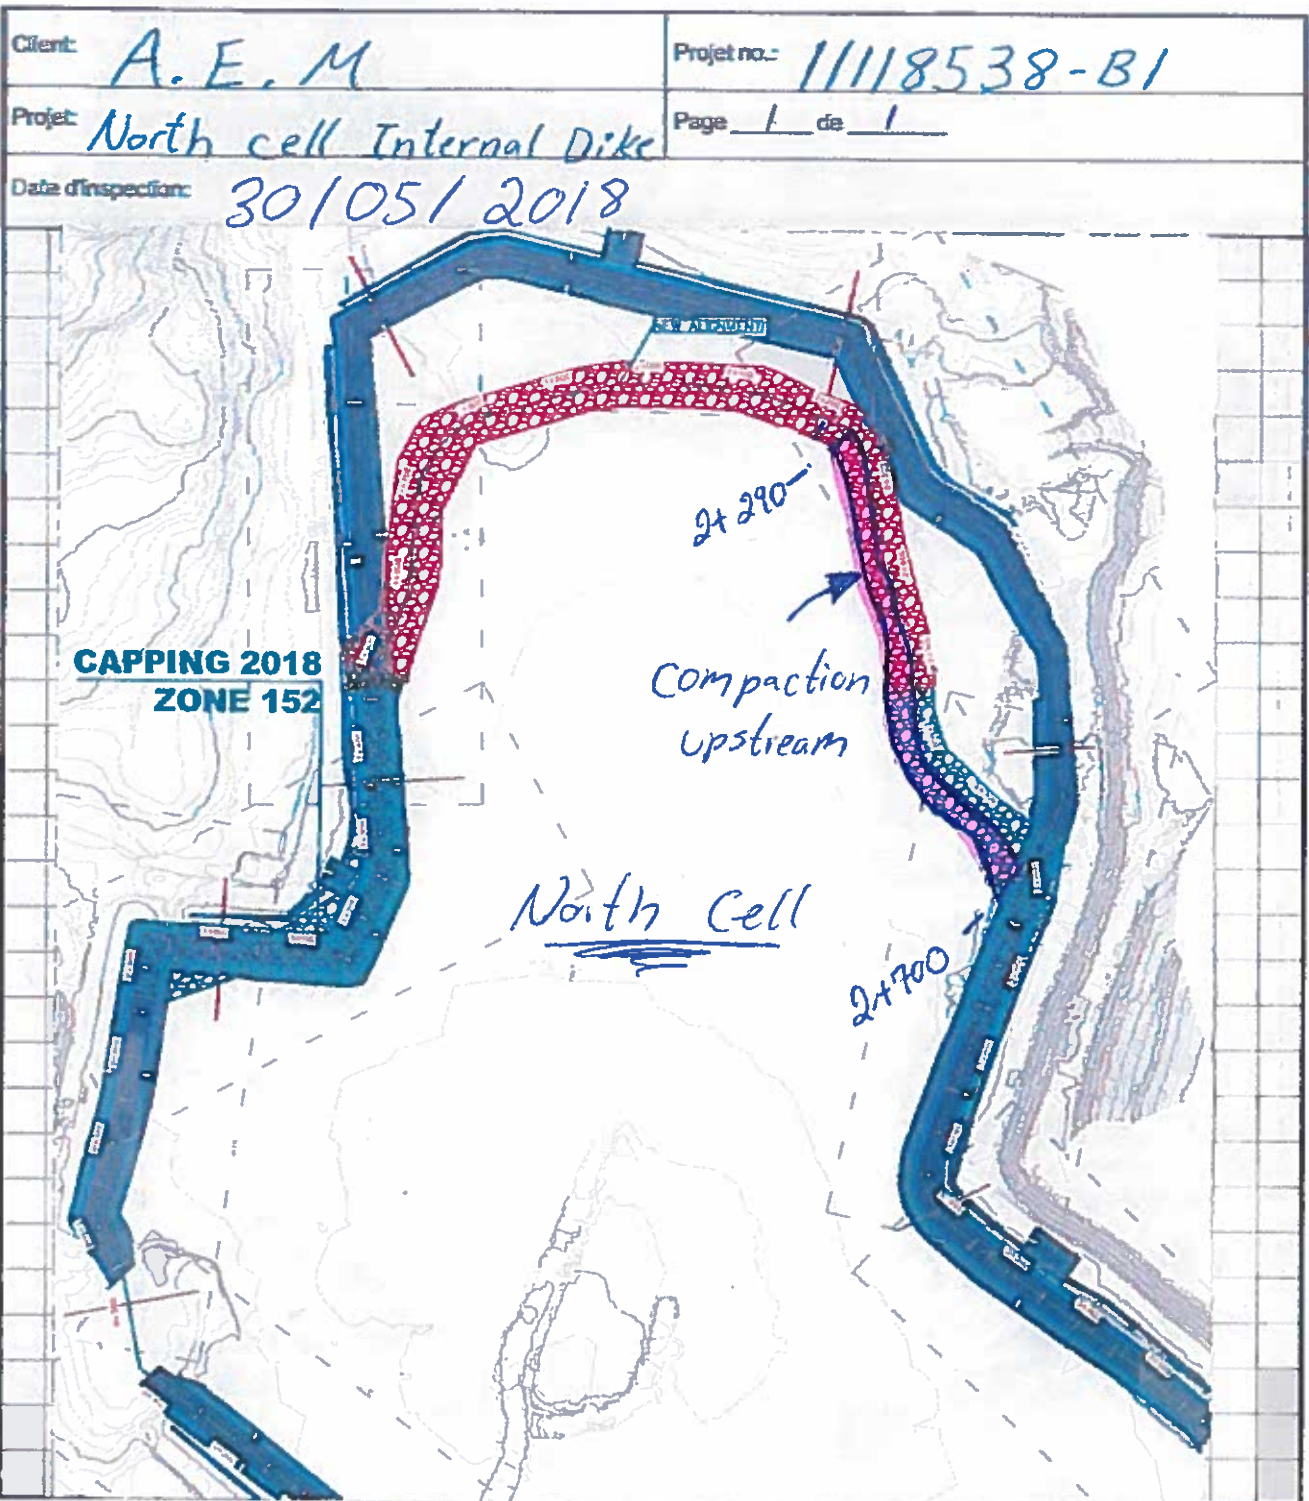 Client: A. E. M
Projet no.: 11118538-B1
Projet: North cell Internal Dike
Page 1 de 1
Date d'inspection: 30/05/2018
NEW ALIGNMENT
2+290
CAPPING 2018
ZONE 152
Compaction
upstream
North Cell
2+700